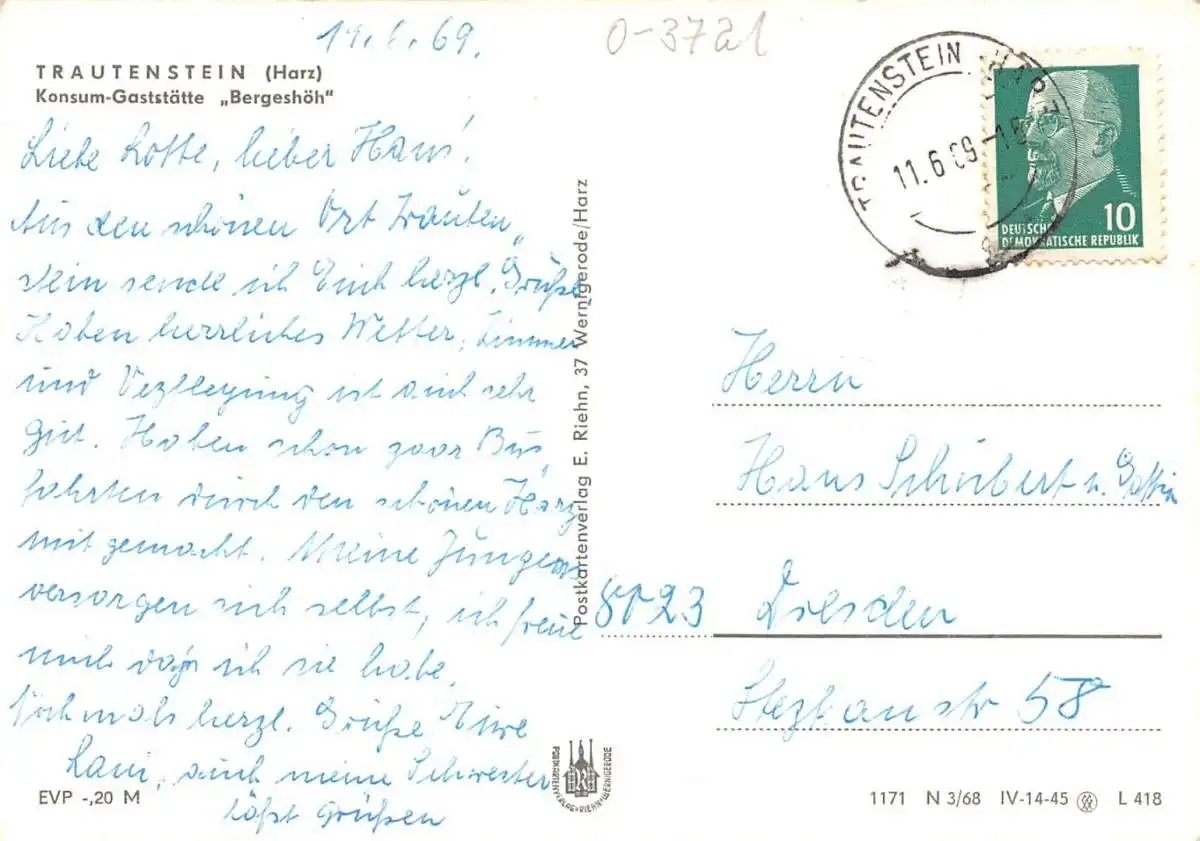 11.6.69.
0-3721
TRAUTENSTEIN (Harz)
Konsum-Gaststätte „Bergeshöh"
Liebe Lotte, lieber Hans!
Aus den schönen Ort Trauten„
stein sende ich Euch herzl. Grüße,
Haben herrliches Wetter, Zimmer
und Verpflegung ist auch sehr
gut. Haben schon zwar Bus„
fahrten durch den schönen Harz
mitgemacht. Meine Jungens
versorgen sich selbst, ich freue
mich daß ich sie habe.
Nochmals herzl. Grüße Eure
auch meine Schwester
läßt Grüßen
EVP -,20 M
Postkartenverlag E. Riehn, 37 Wernigerode/Harz
POSTKARTENVERLAG·RIEHN·WERNIGERODE
TRAUTENSTEIN (HARZ)
11.6.69-18
10
DEUTSCHE
DEMOKRATISCHE REPUBLIK
Herrn
Hans Schubert u. Gattin
8023 Dresden
58
1171 N 3/68 IV-14-45 L 418